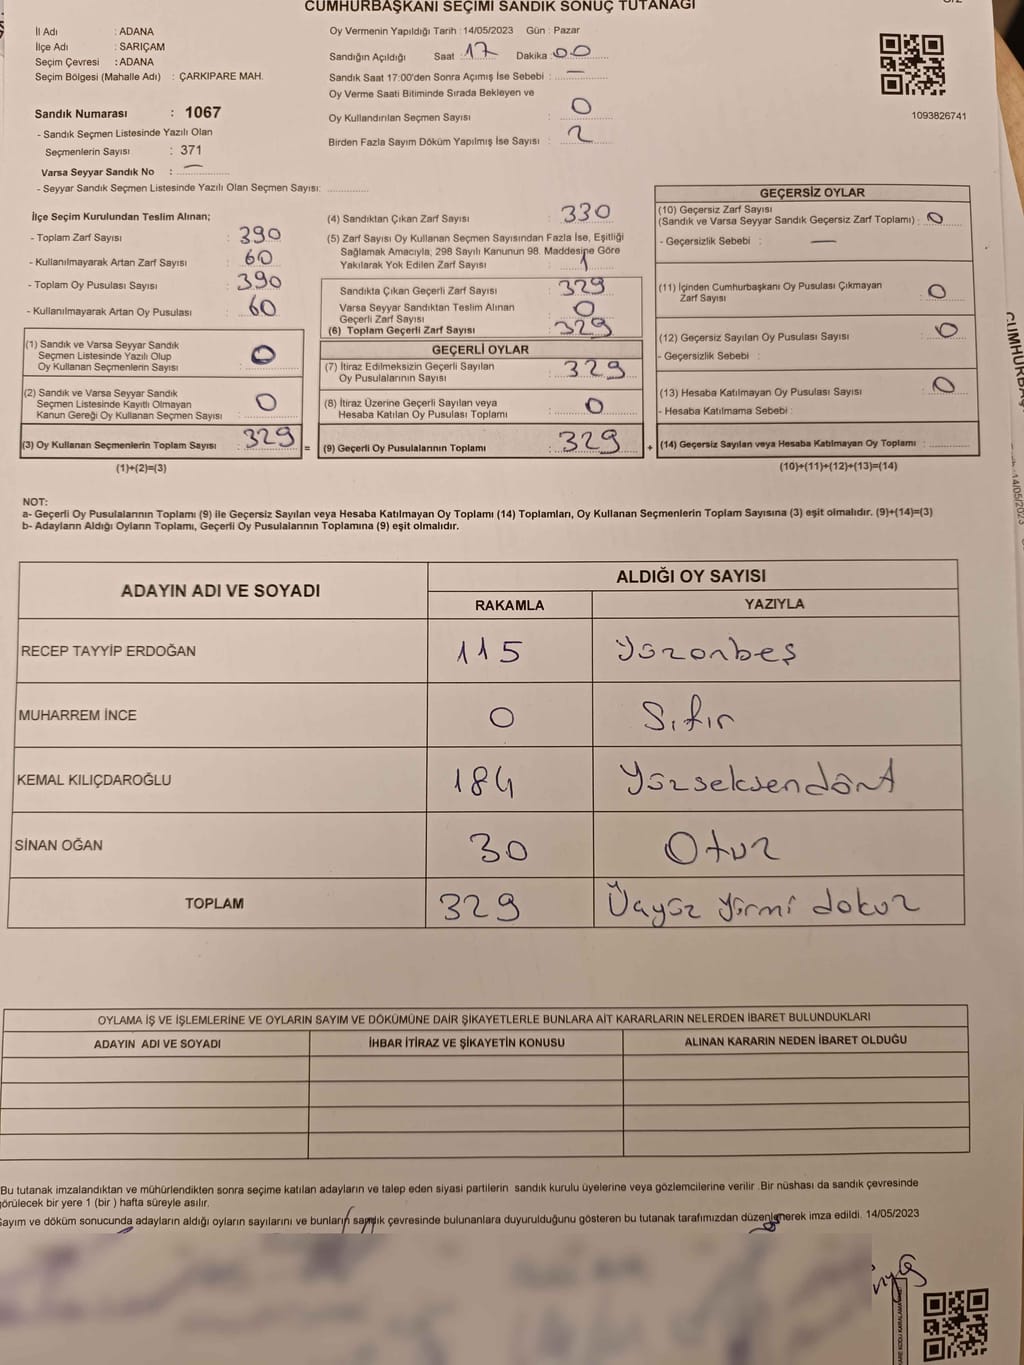 CUMHURBAŞKANI SEÇİMİ SANDIK SONUÇ TUTANAĞI
İl Adı : ADANA
İlçe Adı : SARIÇAM
Seçim Çevresi : ADANA
Seçim Bölgesi (Mahalle Adı) : ÇARKIPARE MAH.
Sandık Numarası : 1067
- Sandık Seçmen Listesinde Yazılı Olan
Seçmenlerin Sayısı : 371
Varsa Seyyar Sandık No : —
- Seyyar Sandık Seçmen Listesinde Yazılı Olan Seçmen Sayısı:
Oy Vermenin Yapıldığı Tarih : 14/05/2023 Gün : Pazar
Sandığın Açıldığı Saat : 17 Dakika : 00
Sandık Saat 17:00'den Sonra Açımış İse Sebebi : —
Oy Verme Saati Bitiminde Sırada Bekleyen ve
Oy Kullandırılan Seçmen Sayısı : 0
Birden Fazla Sayım Döküm Yapılmış İse Sayısı : 2
1093826741
İlçe Seçim Kurulundan Teslim Alınan;
- Toplam Zarf Sayısı : 390
- Kullanılmayarak Artan Zarf Sayısı : 60
- Toplam Oy Pusulası Sayısı : 390
- Kullanılmayarak Artan Oy Pusulası : 60
(1) Sandık ve Varsa Seyyar Sandık
Seçmen Listesinde Yazılı Olup
Oy Kullanan Seçmenlerin Sayısı : 0
(2) Sandık ve Varsa Seyyar Sandık
Seçmen Listesinde Kayıtlı Olmayan
Kanun Gereği Oy Kullanan Seçmen Sayısı : 0
(3) Oy Kullanan Seçmenlerin Toplam Sayısı : 329 =
(1)+(2)=(3)
(4) Sandıktan Çıkan Zarf Sayısı : 330
(5) Zarf Sayısı Oy Kullanan Seçmen Sayısından Fazla İse, Eşitliği
Sağlamak Amacıyla; 298 Sayılı Kanunun 98. Maddesine Göre
Yakılarak Yok Edilen Zarf Sayısı : 1
Sandıkta Çıkan Geçerli Zarf Sayısı : 329
Varsa Seyyar Sandıktan Teslim Alınan
Geçerli Zarf Sayısı : 0
(6) Toplam Geçerli Zarf Sayısı : 329
GEÇERLİ OYLAR
(7) İtiraz Edilmeksizin Geçerli Sayılan
Oy Pusulalarının Sayısı : 329
(8) İtiraz Üzerine Geçerli Sayılan veya
Hesaba Katılan Oy Pusulası Toplamı : 0
(9) Geçerli Oy Pusulalarının Toplamı : 329 +
GEÇERSİZ OYLAR
(10) Geçersiz Zarf Sayısı
(Sandık ve Varsa Seyyar Sandık Geçersiz Zarf Toplamı) : 0
- Geçersizlik Sebebi : —
(11) İçinden Cumhurbaşkanı Oy Pusulası Çıkmayan
Zarf Sayısı : 0
(12) Geçersiz Sayılan Oy Pusulası Sayısı : 0
- Geçersizlik Sebebi :
(13) Hesaba Katılmayan Oy Pusulası Sayısı : 0
- Hesaba Katılmama Sebebi :
(14) Geçersiz Sayılan veya Hesaba Katılmayan Oy Toplamı :
(10)+(11)+(12)+(13)=(14)
NOT:
a- Geçerli Oy Pusulalarının Toplamı (9) ile Geçersiz Sayılan veya Hesaba Katılmayan Oy Toplamı (14) Toplamları, Oy Kullanan Seçmenlerin Toplam Sayısına (3) eşit olmalıdır. (9)+(14)=(3)
b- Adayların Aldığı Oyların Toplamı, Geçerli Oy Pusulalarının Toplamına (9) eşit olmalıdır.
ADAYIN ADI VE SOYADI ALDIĞI OY SAYISI
RAKAMLA YAZIYLA
RECEP TAYYİP ERDOĞAN 115 Yüzonbeş
MUHARREM İNCE 0 Sıfır
KEMAL KILIÇDAROĞLU 184 Yüzseksendört
SİNAN OĞAN 30 Otuz
TOPLAM 329 Üçyüz yirmi dokuz
OYLAMA İŞ VE İŞLEMLERİNE VE OYLARIN SAYIM VE DÖKÜMÜNE DAİR ŞİKAYETLERLE BUNLARA AİT KARARLARIN NELERDEN İBARET BULUNDUKLARI
ADAYIN ADI VE SOYADI İHBAR İTİRAZ VE ŞİKAYETİN KONUSU ALINAN KARARIN NEDEN İBARET OLDUĞU
Bu tutanak imzalandıktan ve mühürlendikten sonra seçime katılan adayların ve talep eden siyasi partilerin sandık kurulu üyelerine veya gözlemcilerine verilir .Bir nüshası da sandık çevresinde
görülecek bir yere 1 (bir ) hafta süreyle asılır.
Sayım ve döküm sonucunda adayların aldığı oyların sayılarını ve bunların sandık çevresinde bulunanlara duyurulduğunu gösteren bu tutanak tarafımızdan düzenlenerek imza edildi. 14/05/2023